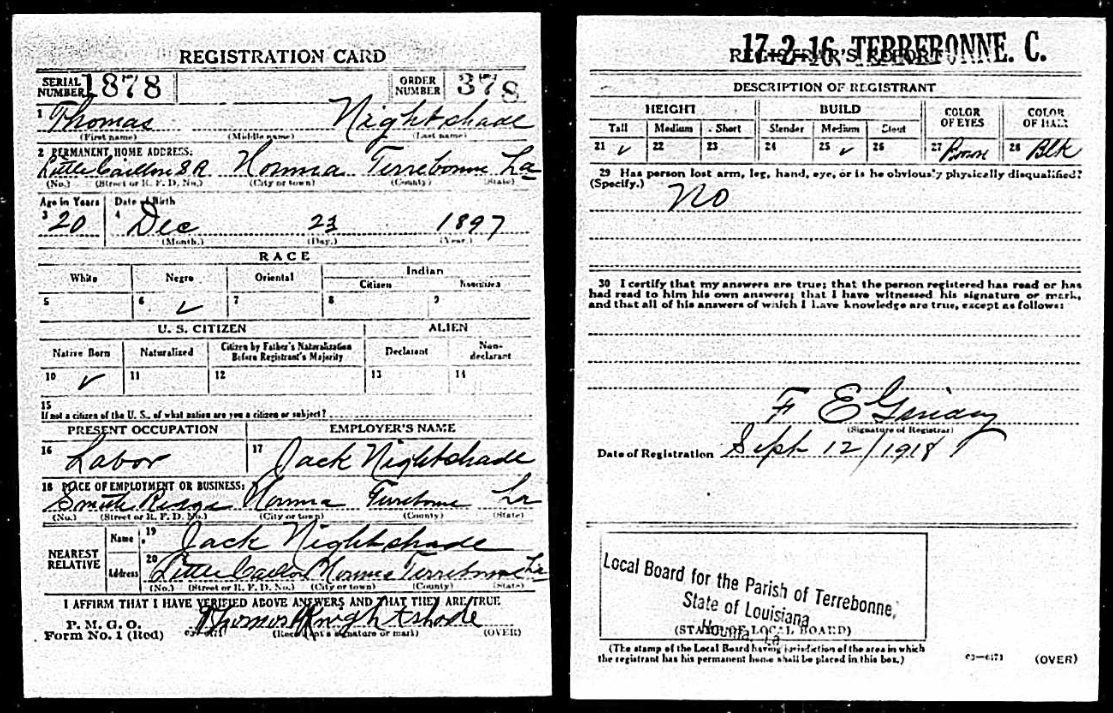 REGISTRATION CARD
SERIAL NUMBER 1878 ORDER NUMBER 378
1 Thomas Nightshade
(First name) (Middle name) (Last name)
2 PERMANENT HOME ADDRESS:
Little Houma Terrebonne La
(No.) (Street or R. F. D. No.) (City or town) (County) (State)
Age in Years Date of Birth
3 20 4 Dec 23 1897
(Month.) (Day.) (Year.)
RACE
White Negro Oriental Indian
Citizen Noncitizen
5 6 ✓ 7 8 9
U. S. CITIZEN ALIEN
Native Born Naturalized Citizen by Father's Naturalization Before Registrant's Majority Declarant Non-declarant
10 ✓ 11 12 13 14
15
If not a citizen of the U. S., of what nation are you a citizen or subject?
PRESENT OCCUPATION EMPLOYER'S NAME
16 Labor 17 Jack Nightshade
18 PLACE OF EMPLOYMENT OR BUSINESS:
Houma Terrebonne La
(No.) (Street or R. F. D. No.) (City or town) (County) (State)
NEAREST RELATIVE
Name 19 Jack Nightshade
Address 20 Little Houma Terrebonne La
(No.) (Street or R. F. D. No.) (City or town) (County) (State)
I AFFIRM THAT I HAVE VERIFIED ABOVE ANSWERS AND THAT THEY ARE TRUE
P. M. G. O.
Form No. 1 (Red) Thomas Nightshade
(Registrant's signature or mark) (OVER)
17-2-16 TERREBONNE. C.
REGISTRAR'S REPORT
DESCRIPTION OF REGISTRANT
HEIGHT BUILD COLOR OF EYES COLOR OF HAIR
Tall Medium Short Slender Medium Stout
21 ✓ 22 23 24 25 ✓ 26 27 Brown 28 Blk
29 Has person lost arm, leg, hand, eye, or is he obviously physically disqualified?
(Specify.) No
30 I certify that my answers are true; that the person registered has read or has
had read to him his own answers; that I have witnessed his signature or mark,
and that all of his answers of which I have knowledge are true, except as follows:
F E
(Signature of Registrar)
Date of Registration Sept 12/1918
Local Board for the Parish of Terrebonne,
State of Louisiana
Houma, La
(STAMP OF LOCAL BOARD)
(The stamp of the Local Board having jurisdiction of the area in which
the registrant has his permanent home shall be placed in this box.)
03—6171 (OVER)